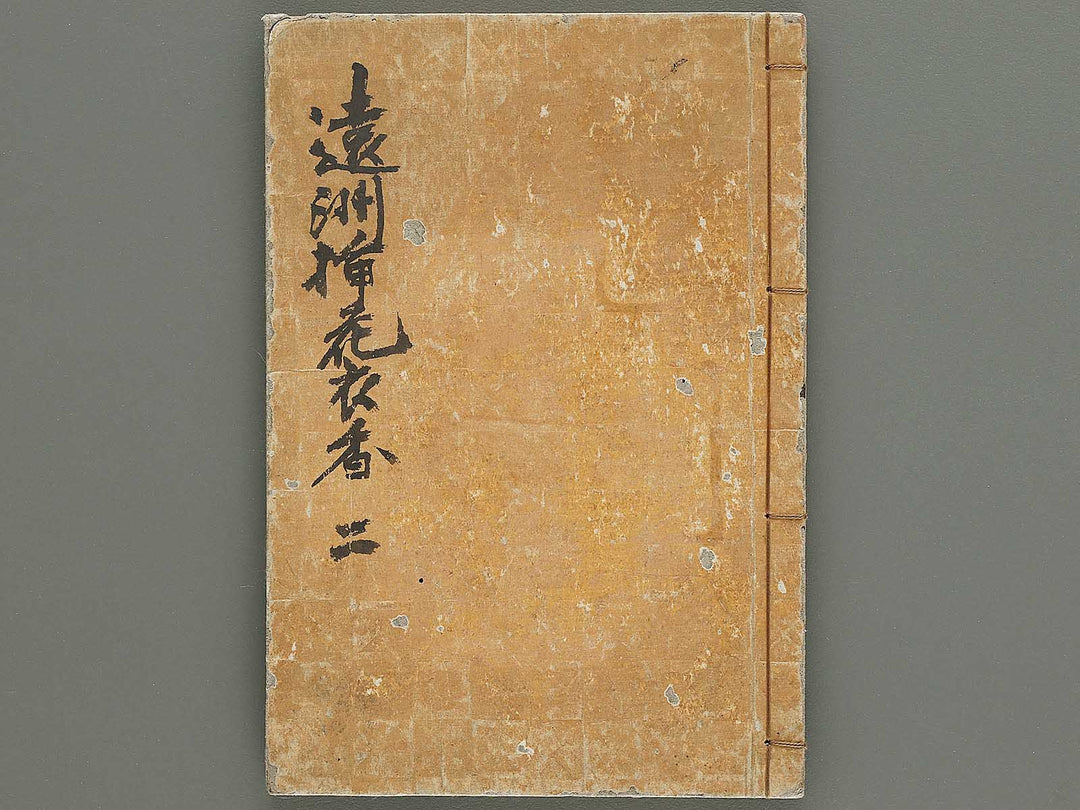 遠洲揷花衣香 二